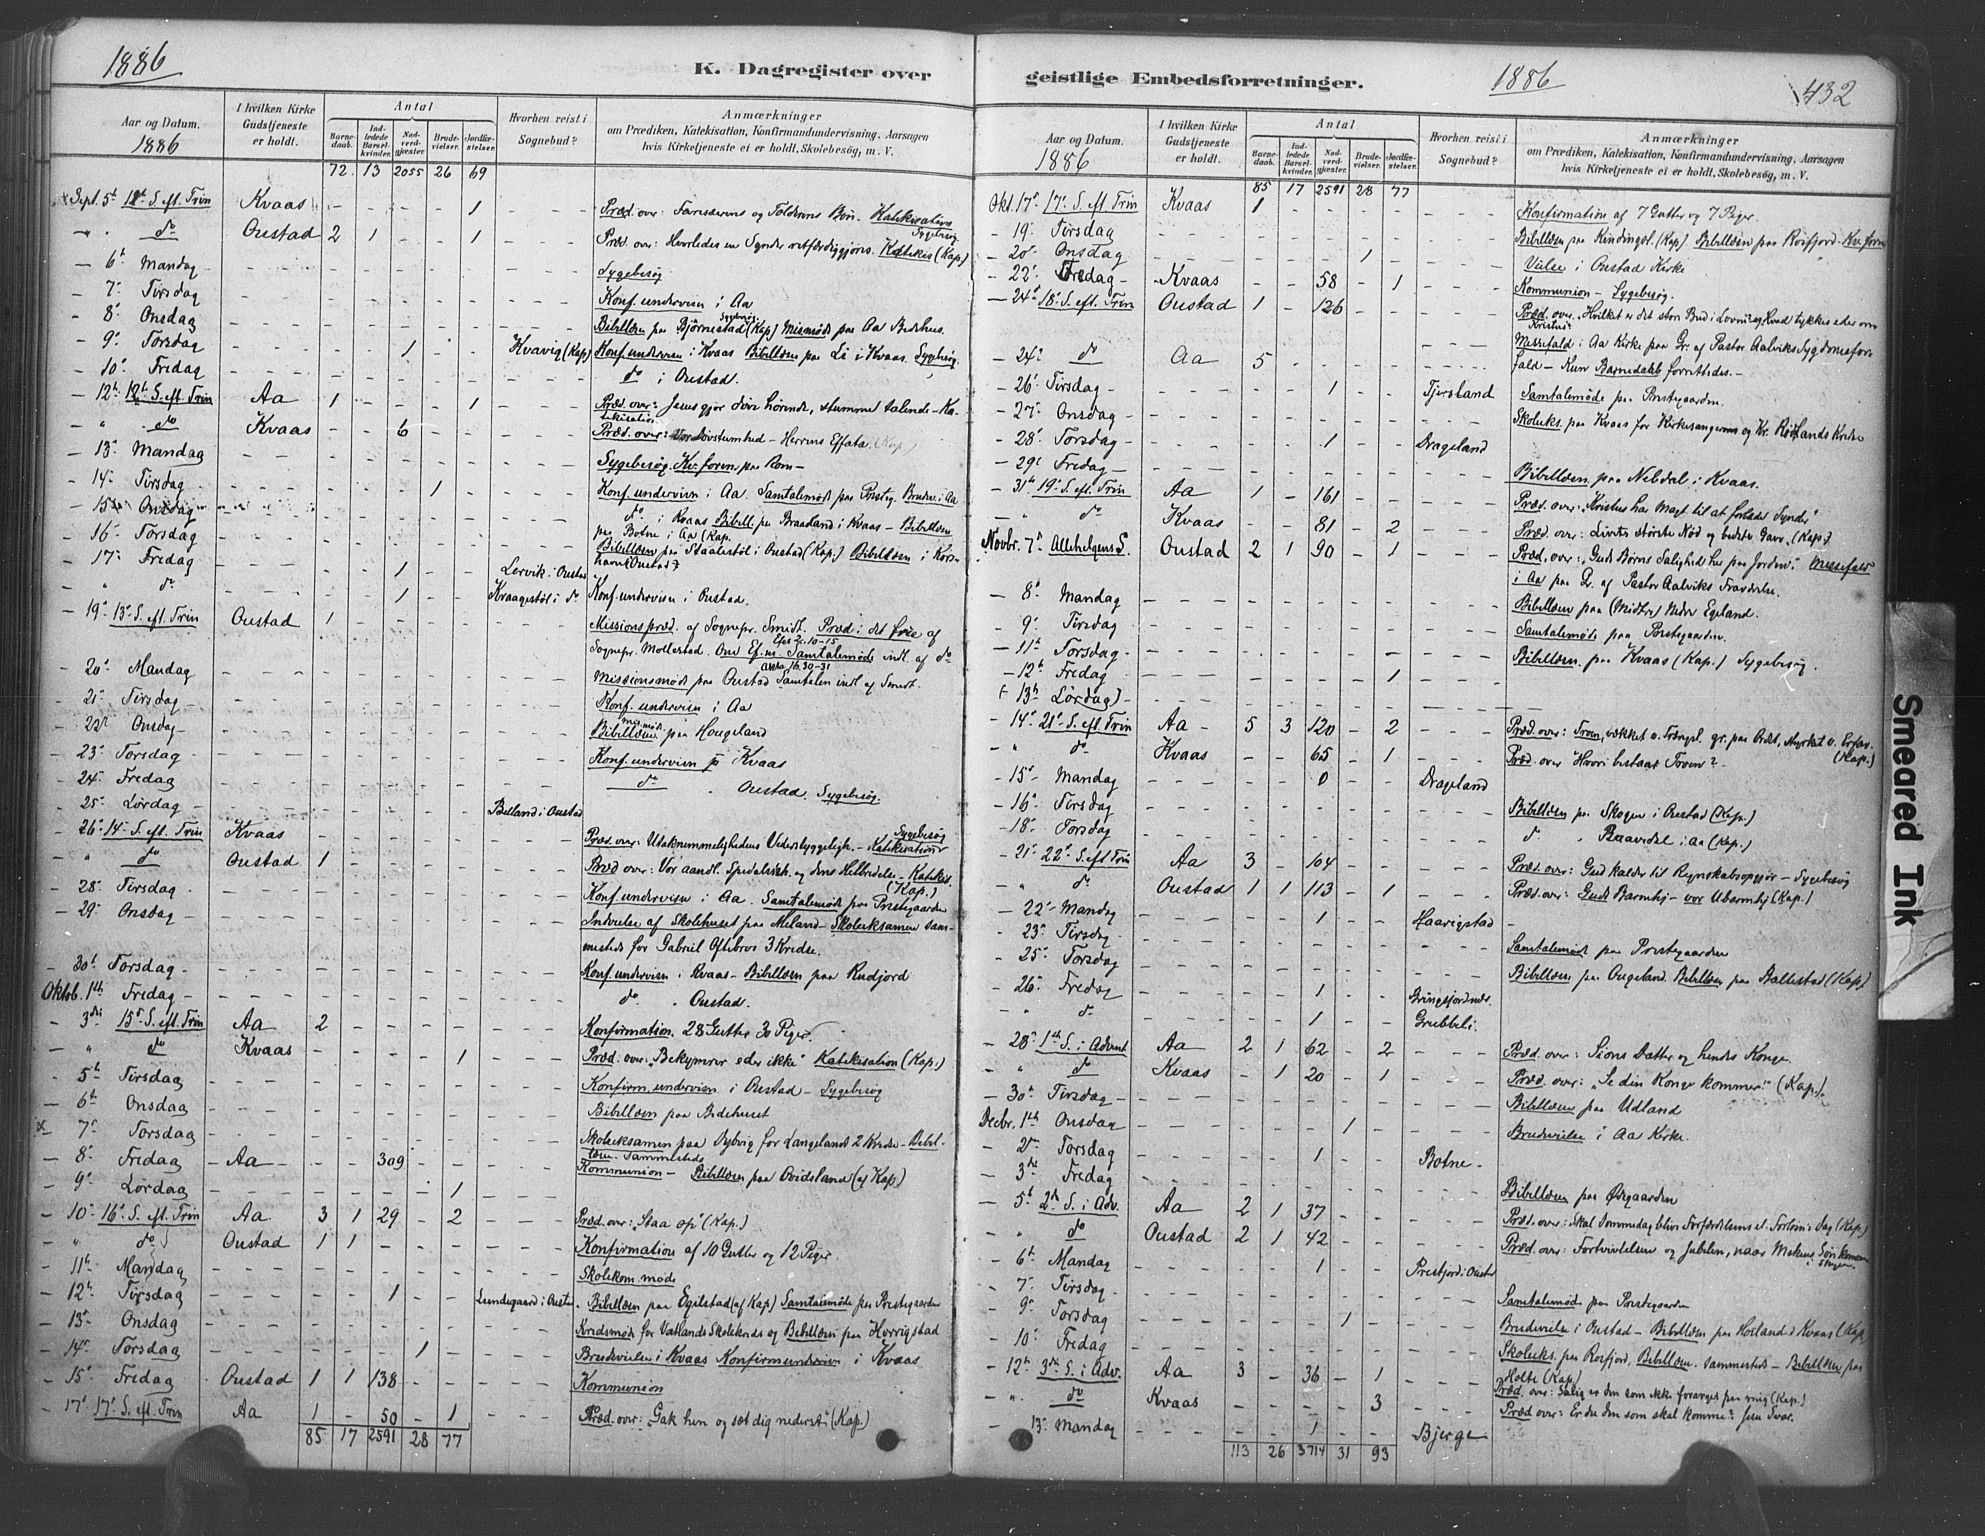 1886
K. Dagregister over
Aar og Datum. 1886
I hvilken Kirke Gudstjeneste er holdt.
Antal
Barne-daab.
Ind-ledede Barsel-kvinder.
Nad-verd-gjæster.
Brude-vielser.
Jordfæ-stelser.
Hvorhen reist i Sognebud?
Anmærkninger
om Prædiken, Katekisation, Konfirmandundervisning, Aarsagen
hvis Kirketjeneste ei er holdt, Skolebesøg, m. V.
72 13 2055 26 69
Sept. 5t S. eft. Trin Kvaas 1 Præd. over: Farisæerens og Tolderens Bøn. Katekisation
Sygebesøg
" do Oustad 2 1 1 Præd. over: Hvorledes en Synder retfærdiggjøres. Katekis (Kap)
6t Mandag Sygebesøg
7. Tirsdag Konf. undervisn i Aa
8. Onsdag Bibellæsn paa Bjørnestad (Kap) Mismøde paa Aa Bedehus.
9. Torsdag 1 Kvavig (Kap) Konf. undervisn i Kvaas Bibellæsn paa Li i Kvaas. Sygebesøg
10. Fredag do i Oustad.
12t 12t S. eft. Trin Aa 1 1 Præd. over: Jesus gjør døve hørende, stumme talende - Ka-
tekisation
" do Kvaas 6 Præd. over: Vor Døvstumhed - Herrens Effata (Kap)
13. Mandag Sygebesøg. Kv. foren. paa Rom
14. Tirsdag 1 Konf. undervisn i Aa. Samtalemøde paa Prestg. Brudev. i Aa
15. Onsdag do i Kvaas Bibell. paa Braadland i Kvaas - Bibellæsn
paa Botne i Aa (Kap.
16. Torsdag Bibellæsn paa Skaalestøl i Oustad (Kap.) Bibellæsn i Kors-
havn (Oustad)
17. Fredag 1 Lervik i Oustad
" do 1 Kraagestøl i do Konf. undervisn i Oustad.
19. 13. S. eft. Trin Oustad 1 Missionspræd. af Sognepr. Smidt. Præd. i det frie af
Efes 2. 10-15
Sognepr. Mollestad. Om Ef.m. Samtalemøde indl. af do
Akta 16. 30-31
20. Mandag Missionsmøde paa Oustad Samtalen indl. af Smidt.
21. Tirsdag Konf. undervisn i Aa
22. Onsdag Bibellæsn paa Hougeland
23. Torsdag Konf. undervisn i Kvaas
24. Fredag do " Oustad. Sygebesøg.
25. Lørdag Belland i Oustad
26. 14. S. eft. Trin Kvaas Præd. over: Utaknemmelighedens Vederstyggeligh. - Katekisation
Sygebesøg
" do Oustad 1 Præd over: Vor aandl. Spedalskh. og dens Helbredelse - Katekis.
(Kap.)
28. Tirsdag Konf. undervisn i Aa. Samtalemøde paa Prestegaarden
29. Onsdag Indvielse af Skolehuset paa Meland - Skoleeksamen sam-
mesteds for Gabriel Oftebros 3 Kredse.
30t Torsdag Konf. undervisn i Kvaas - Bibellæsn paa Rudjord
Oktob. 1ste Fredag do " Oustad.
3die 15. S. eft. Trin Aa 2 Konfirmation. 28 Gutter 30 Piger
" do Kvaas 1 Præd. over: "Bekymrer eder ikke" Katekisation (Kap.)
5t Tirsdag Konfirm. undervisn i Oustad - Sygebesøg
6t Onsdag Bibellæsn paa Bedehuset
7. Torsdag Skoleeksamen paa Nybvig for Langelands 2 Kredse - Bibel-
læsn. sammesteds
8. Fredag Aa 309 Kommunion - Bibellæsn paa Ovidsland (af Kap)
9. Lørdag 1
10. 16. S. eft. Trin Aa 3 1 29 2 Præd. over: "Staa op" (Kap.)
" do Oustad 1 1 Konfirmation af 10 Gutter og 12 Piger
11t Mandag Skolekom. møde
12t Tirsdag 1 Lundegaard i Oustad. Bibellæsn paa Egilstad (af Kap) Samtalemøde paa Prestegaarden
13. Onsdag Kredsmøde for Vatlands Skolekreds og Bibellæsn paa Herrigstad
14. Torsdag 1 Brudevielse i Kvaas Konfirmundervisn i Kvaas
15. Fredag Oustad 1 1 138 Kommunion
17. 17. S. eft. Trin Aa 1 50 1 Præd. over: "Gak hen og sæt dig nederst" (Kap.)
85 17 2591 28 77
geistlige Embedsforretninger.
1886
432
Aar og Datum. 1886
I hvilken Kirke Gudstjeneste er holdt.
Antal
Barne-daab.
Ind-ledede Barsel-kvinder.
Nad-verd-gjæster.
Brude-vielser.
Jordfæ-stelser.
Hvorhen reist i Sognebud?
Anmærkninger
om Prædiken, Katekisation, Konfirmandundervisning, Aarsagen
hvis Kirketjeneste ei er holdt, Skolebesøg, m. V.
85 17 2591 28 77
Okt. 17. 17. S. eft. Trin Kvaas 1 Konfirmation af 7 Gutter og 7 Piger.
19. Tirsdag Bibellæsn paa Kindingsl. (Kap) Bibellæsn paa Roifjord - Kv. foren
20. Onsdag 1 Vielse i Oustad Kirke
22. Fredag Kvaas 58 1 Kommunion - Sygebesøg.
24. 18. S. eft. Trin Oustad 1 126 Præd. over: "Hvilket er det store Bud i Loven" og "Hvad tykkes eder om
Kristus"
24. do Aa 5 Messefald i Aa Kirke paa Gr. af Pastor Aalviks Sygdomsfor-
fald - Kun Barnedaab forrettedes. -
26. Tirsdag 1 Tjersland Samtalemøde paa Prestegaarden.
27. Onsdag Skoleeks. paa Kvaas for Kirkesangerens og Kr. Røilands Kredse
28. Torsdag 1 Drageland
29. Fredag Bibellæsn. paa Nebdal i Kvaas.
31t 19. S. eft. Trin Aa 1 161 Præd. over: "Kristus har Magt til at forlade Synder"
" do Kvaas 81 2 Præd. over: Livets største Nød og bedste Gave. (Kap)
Novbr. 7. Allehelgens S. Oustad 2 1 90 1 Præd. over: "Guds Børns Salighed her paa Jorden". Messefald
i Aa paa Gr. af Pastor Aalviks Fraværelse.
8. Mandag Bibellæsn paa (Midtre) Nedre Egeland.
9. Tirsdag Samtalemøde paa Prestegaarden.
11t Torsdag Bibellæsn. paa Kvaas (Kap.) Sygebesøg.
12t Fredag 1
(13t Lørdag)
14. 21. S. eft. Trin Aa 5 3 120 2 Præd. over: Troen, vækket v. Trængsl. gr. paa Ordet, styrket v. Erfar.
(Kap.)
" do Kvaas 65 1 Præd. over Hvori bestaar Troen?
15. Mandag 0 Drageland
16. Tirsdag Bibellæsn paa Skogen i Oustad (Kap.)
18. Torsdag do " Raavdal i Aa (Kap.)
21. 22. S. eft Trin Aa 3 104 Præd. over: Gud kalder til Regnskabsopgjør - Sygebesøg
" do Oustad 1 1 113 1 Præd. over: Guds Barmhj. - vor Ubarmhj (Kap.)
22. Mandag 1 Haarigstad
23. Tirsdag Samtalemøde paa Prestegaarden
25. Torsdag Bibellæsn paa Ougeland. Bibellæsn paa Stallestad (Kap)
26. Fredag 1 Bringsjordnes.
" do 1 Grubbeli.
28. 1ste S. i Advent Aa 2 1 62 2 Præd. over: Sions Datter og hendes Konge.
" do Kvaas 1 20 1 Præd. over: "Se din Konge kommer" (Kap.).
30. Tirsdag Bibellæsn paa Udland
Decbr. 1ste Onsdag 1 Brudevielse i Aa Kirke.
2. Torsdag 1 Botne
3die Fredag Bibellæsn paa Ødegaarden
5t 2. S. i Adv. Aa 2 1 37 Præd. over: Skal Dommedag blive Forfærdelsens el. Forløsn's Dag (Kap.)
" do Oustad 2 1 42 Præd. over: Fortvivlelsen og Jubelen, naar Mskens Søn kommer
i Skyen.
6t Mandag 1 Prestfjord i Oustad
7. Tirsdag Samtalemøde paa Prestegaarden
9. Torsdag 1 Brudevielse i Oustad - Bibellæsn paa Høiland i Kvaas (Kap.
10. Fredag Skoleeks. paa Roifjord, Bibellæsn. sammesteds - Bibellæsn paa
Holte (Kap.)
12t 3die S. i Adv. Aa 3 36 1 Præd. over: Salig er den som ikke forarges paa mig (Kap.)
" do Kvaas 3 Præd over: Er du den som skal komme? Jesu Svar.
13. Mandag 1 Bjerge
113 26 3714 31 93
Smeared Ink